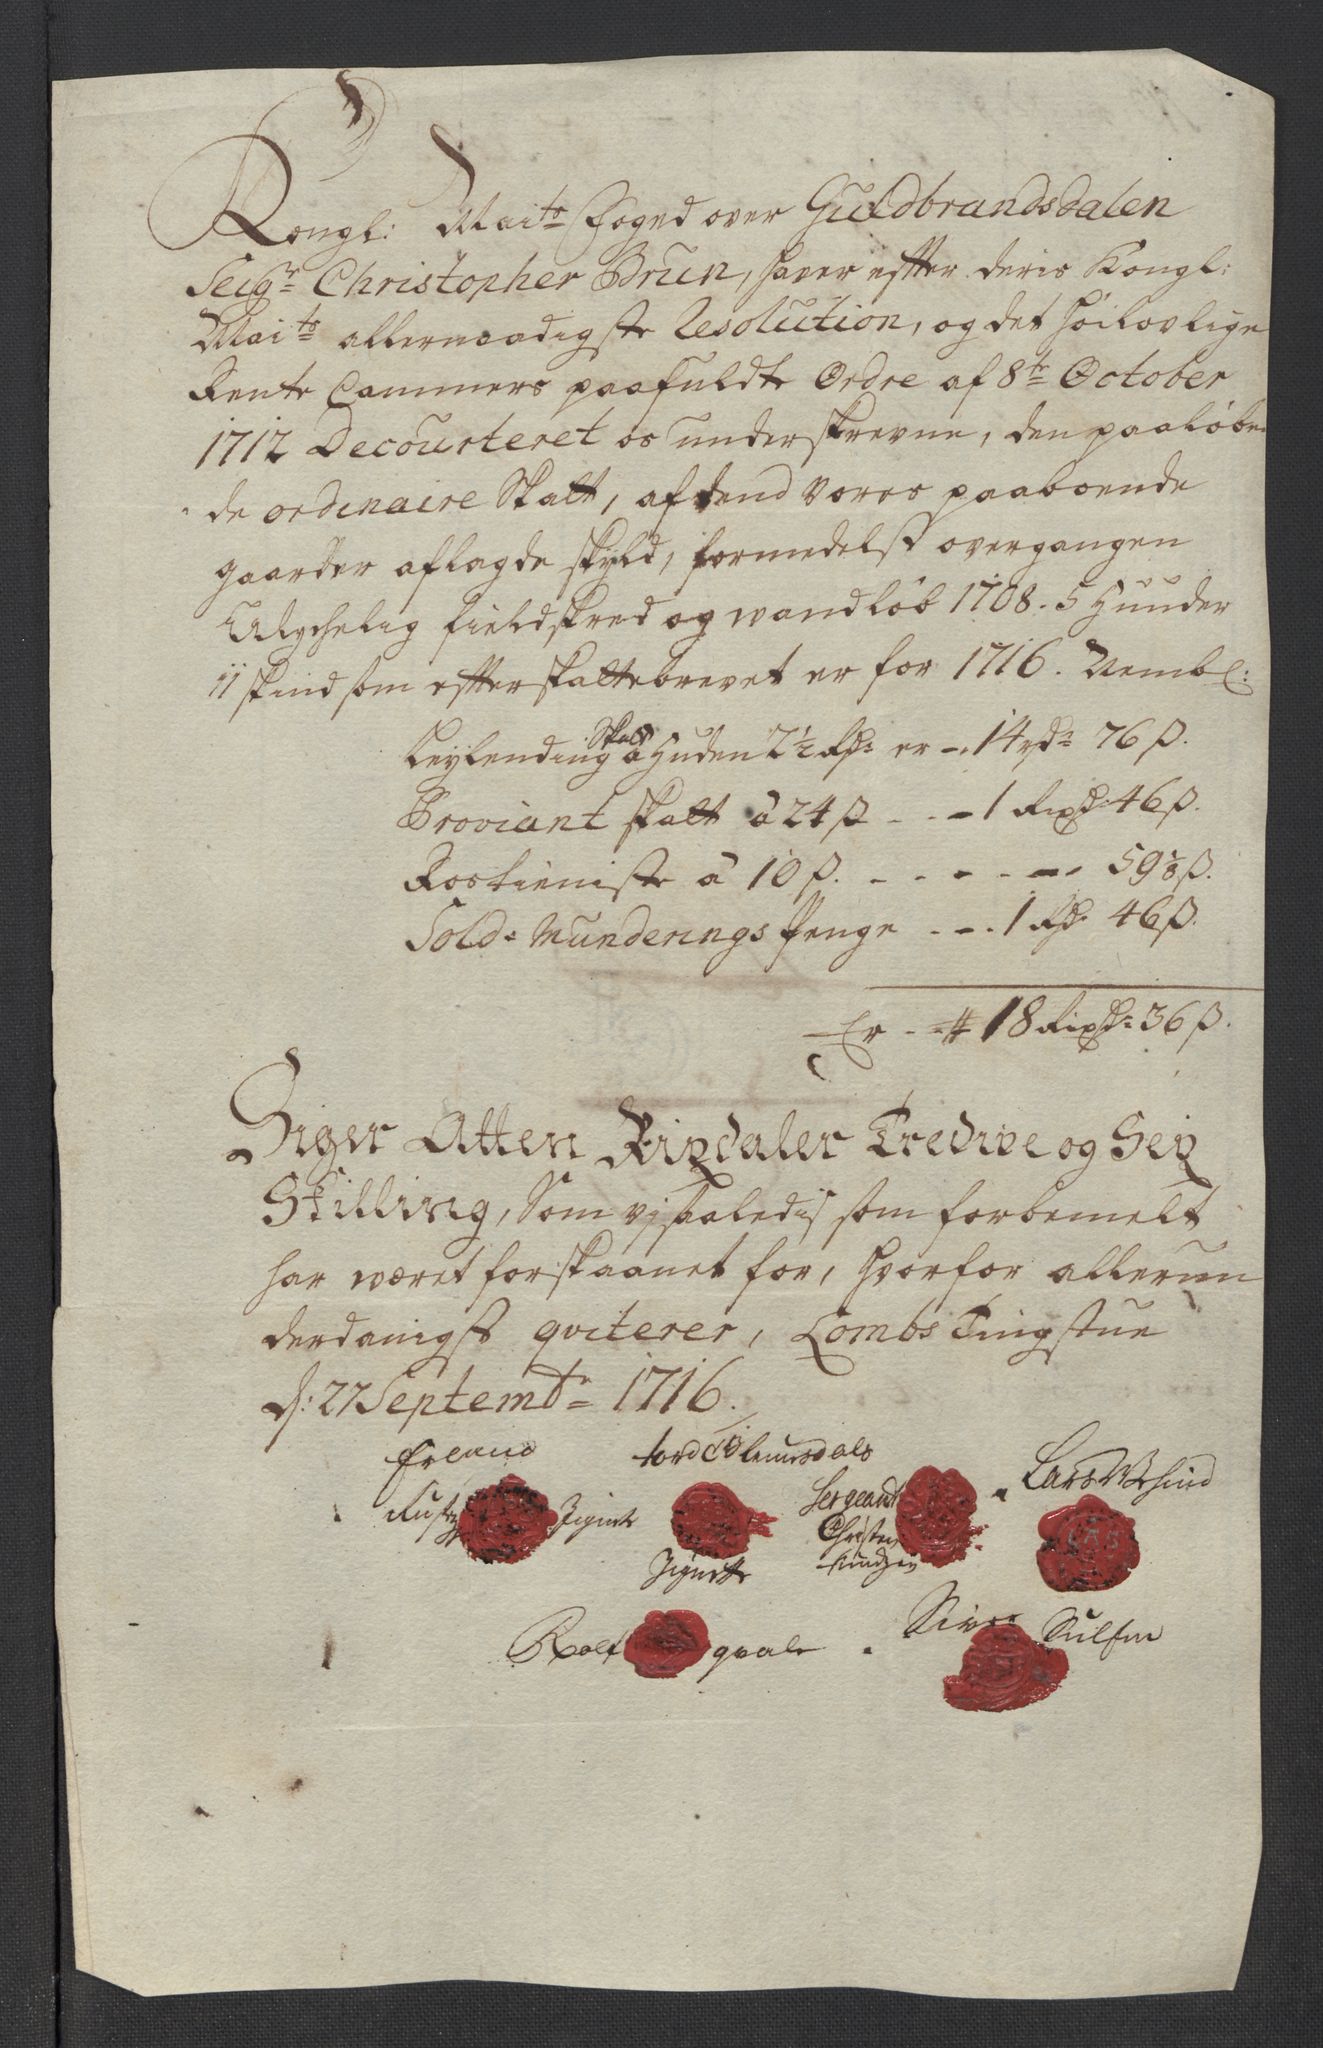 Kongl: Mai:ts Foged over Guldbrandsdalen
Seigr Christopher Brun, haver efter deris Kongl:
Mai:ts allernaadigste Resolution, og det høilovlige
Rente Cammers paafuldte Ordre af 8te October
1712 Decourteret os underskrevne, den paaløben
de ordinaire Skatt, af dend voros paaboende
gaarder aflagde skyld, formedelst overgangen
Ulychelig fieldskred og wandløb 1708. 5 Hunder
11 skind som effter skattebrevet er for 1716. Nembl:
Leylending Skatt á Huden 2½ Rd: er - 14 rd: 76 ß.
Proviant skatt á 24 ß - - - 1 Rixd: 46 ß.
Rostieniste á 10 ß. - - - - - - 59⅙ ß.
Sold: Munderings Penge - - - 1 Rd: 46 ß.
Er - - # 18 Rixd: 36 ß.
Siger Atten Rixdaler Tredive og Sex
Skilling, Som vj saaledis som forbemelt
har wæret forskaanet for, hvorfor allerun
derdanigst qviterer, Lombs Tingstue
d: 27 Septembr 1716.
Erland tord
Lars
Sergeant
Rusten Signete Christen
Signette
Rolf qvale Siver Sulfen